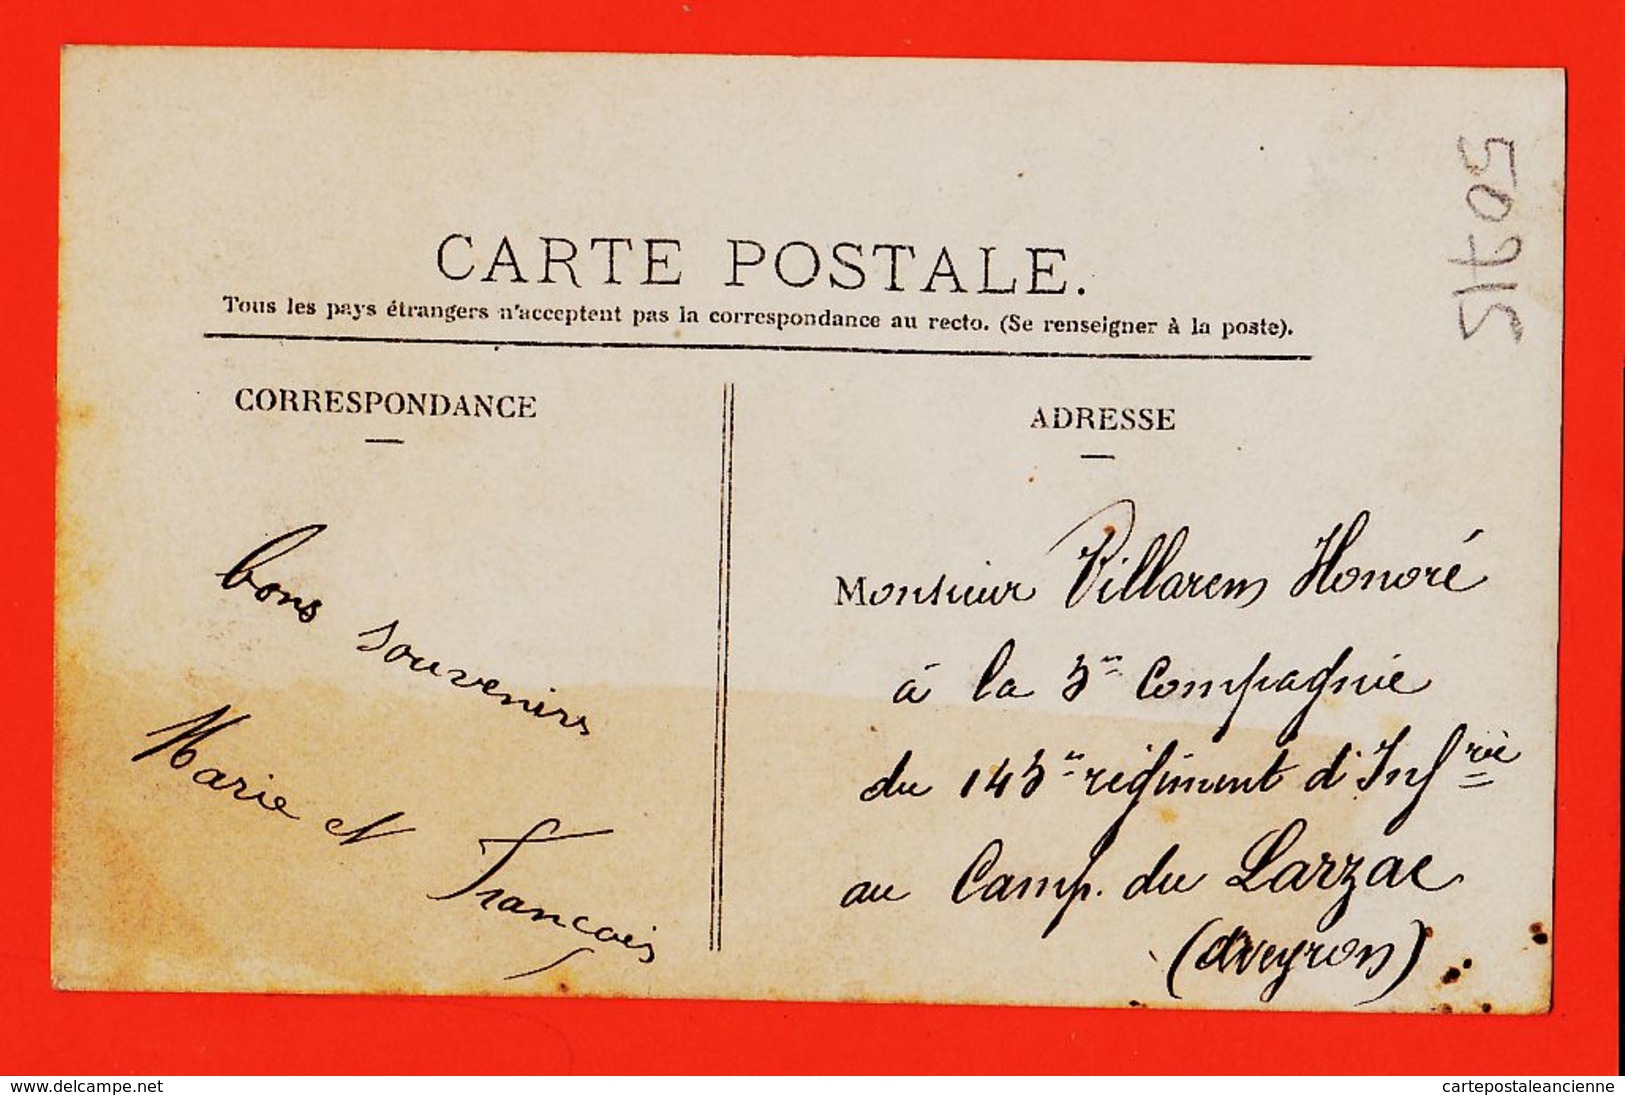 CARTE POSTALE.
Tous les pays étrangers n'acceptent pas la correspondance au recto. (Se renseigner à la poste).
CORRESPONDANCE
ADRESSE
bons souvenirs
Marie et François
Monsieur Villarem Honoré
à la 3me Compagnie
du 143me régiment d'Infrie
au Camp. du Larzac
(Aveyron)
www.delcampe.net
cartepostaleancienne